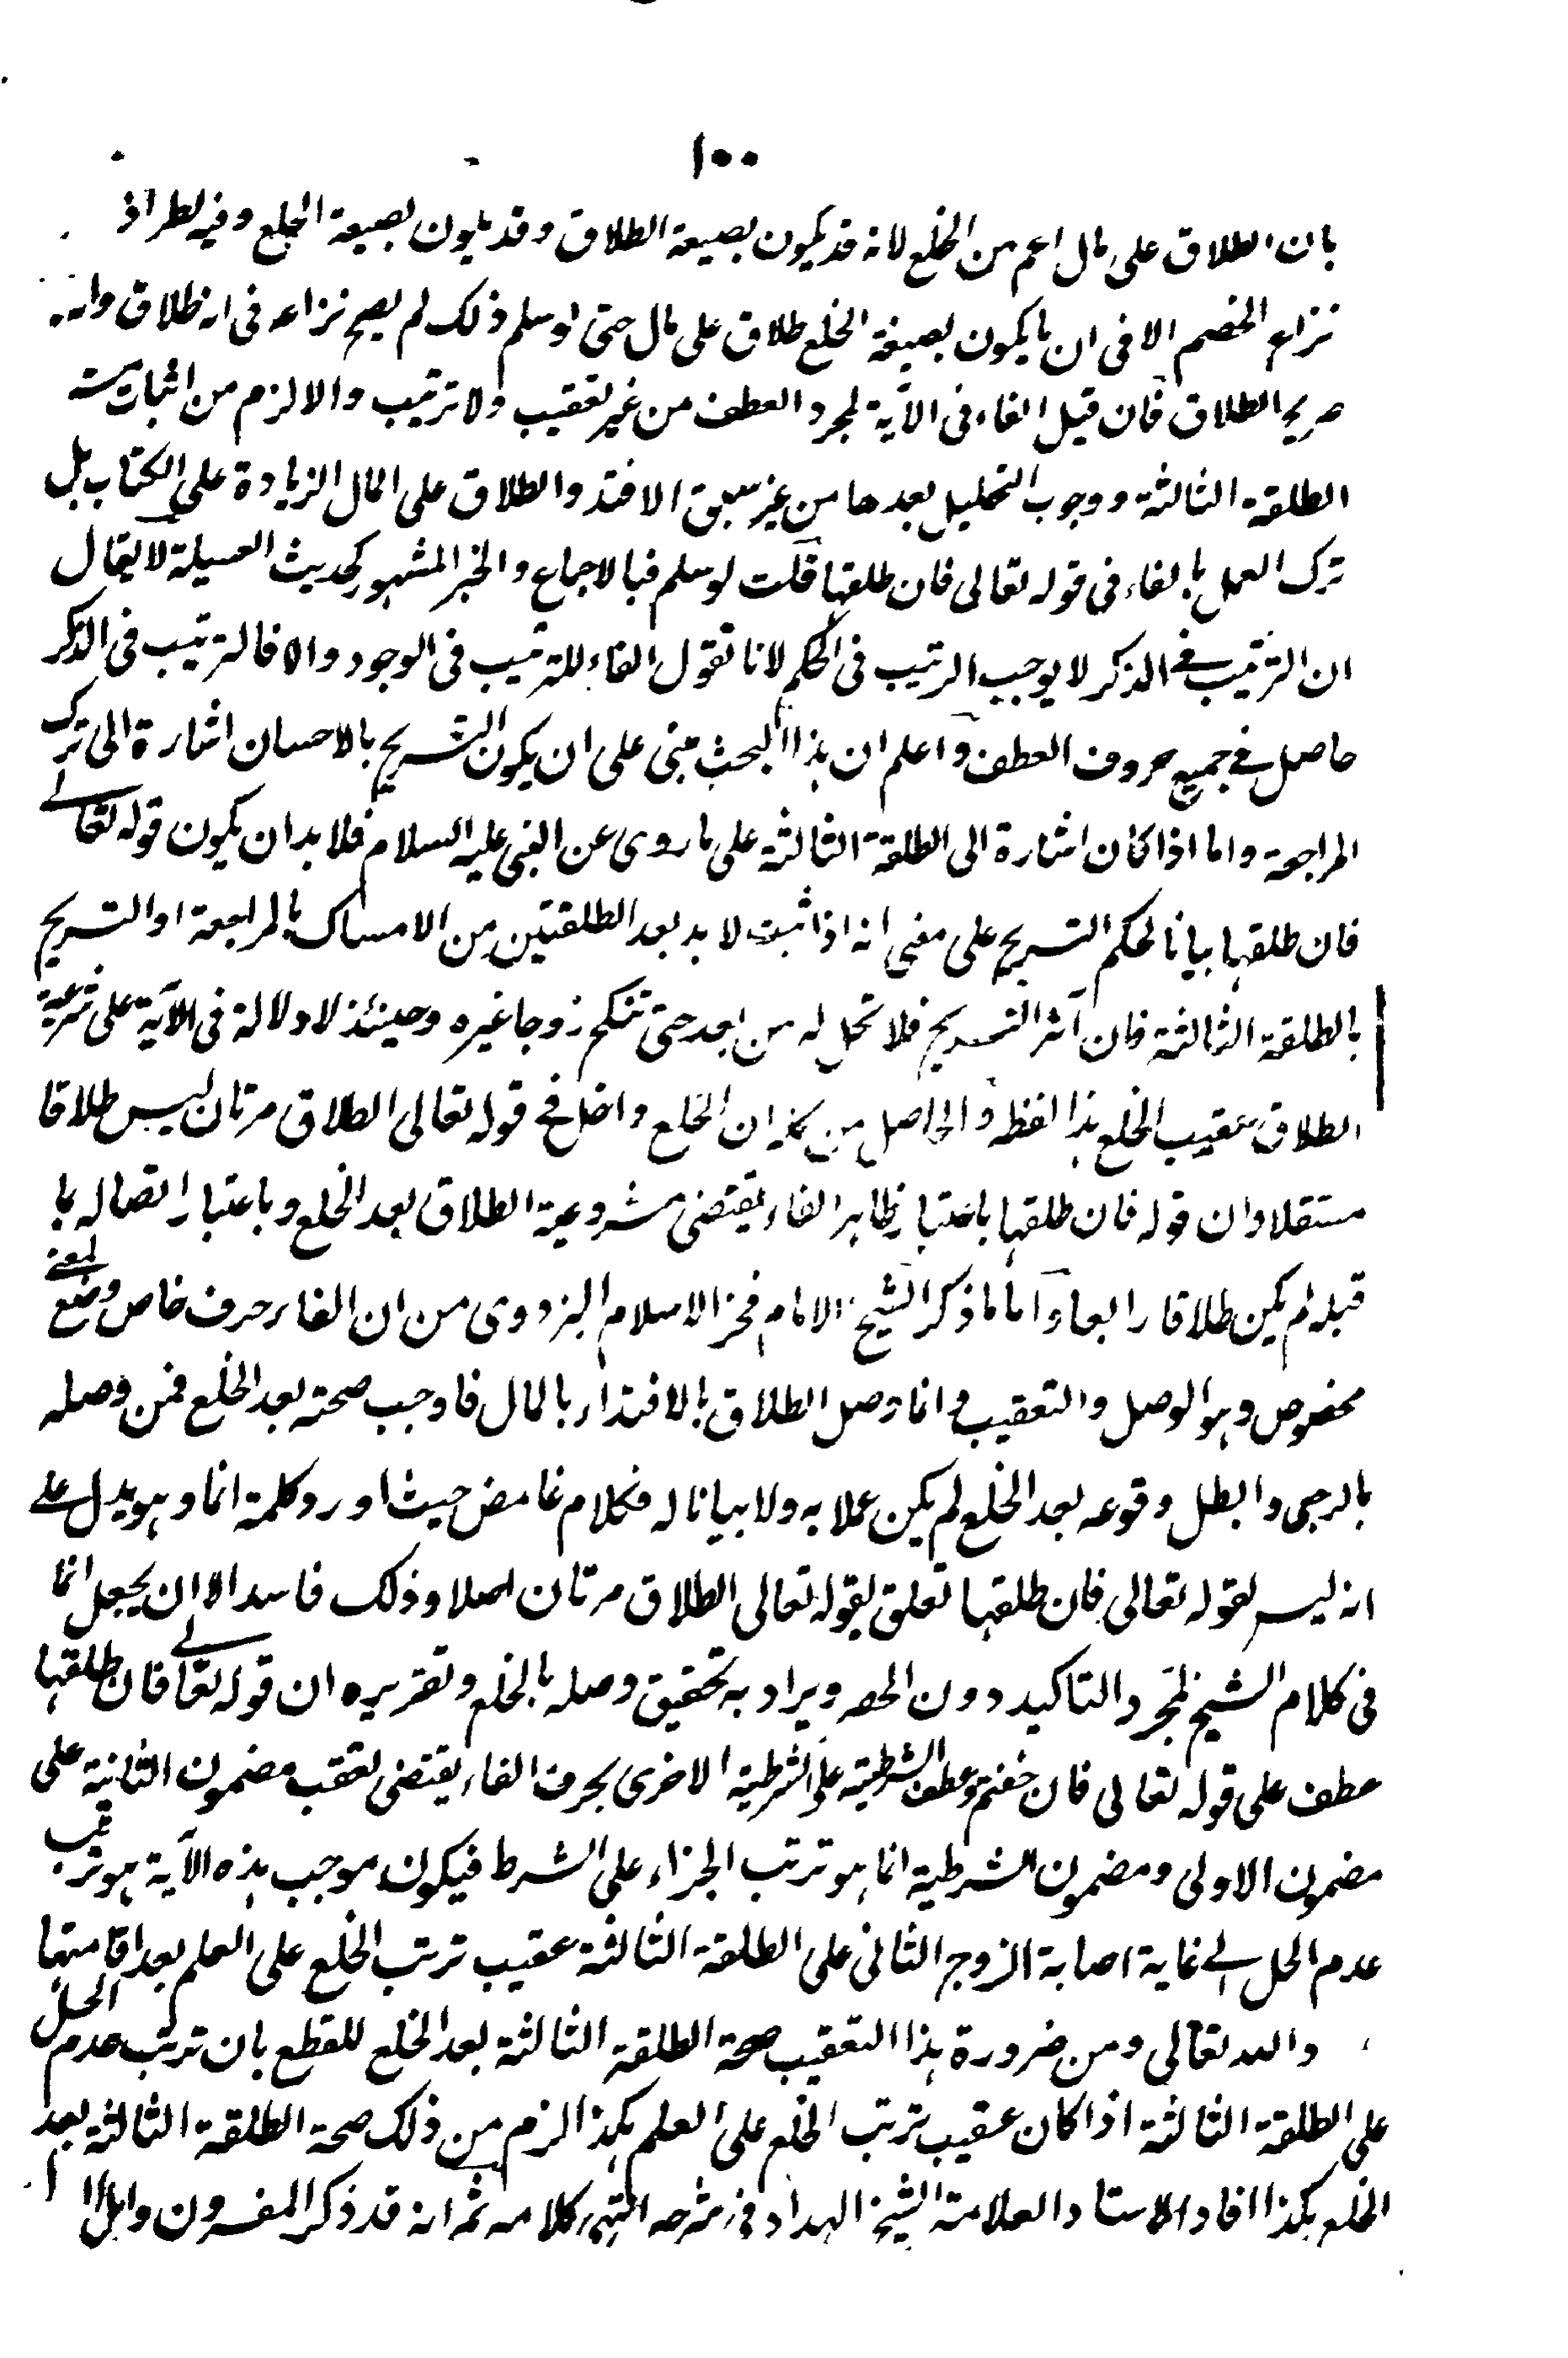 ١٠٠
بان الطلاق على مال اعم من الخلع لانه قد يكون بصيغة الطلاق وقد يكون بصيغة الخلع وفيه نظر اذ
نزاع الخصم الا فى ان ما يكون بصيغة الخلع طلاق على مال حتى لو سلم ذلك لم يصح نزاعه فى انه طلاق وانه
صريح الطلاق فان قيل الفاء فى الآية لمجرد العطف من غير تعقيب ولا ترتيب والا لزم من اثبات
الطلقة الثالثة ووجوب التحليل بعدها من غير سبق الافتداء والطلاق على المال الزيادة على الكتاب بل
ترك العمل بالفاء فى قوله تعالى فان طلقها قلت لو سلم فبالاجماع والخبر المشهور كحديث العسيلة لا يقال
ان الترتيب فى الذكر لا يوجب الترتيب فى الحكم لانا نقول الفاء للترتيب فى الوجود والا فالترتيب فى الذكر
حاصل فى جميع حروف العطف واعلم ان هذا البحث مبنى على ان يكون التسريح بالاحسان اشارة الى ترك
المراجعة واما اذا كان اشارة الى الطلقة الثالثة على ما روى عن النبى عليه السلام فلا بد ان يكون قوله تعالى
فان طلقها بيانا لحكم التسريح على معنى انه اذا ثبت لا بد بعد الطلقتين من الامساك بالمراجعة او التسريح
بالطلقة الثالثة فان آثر التسريح فلا تحل له من بعد حتى تنكح زوجا غيره وحينئذ لا دلالة فى الآية على شرعية
الطلاق عقيب الخلع هذا لفظه والحاصل من كلامه ان الخلع داخل فى قوله تعالى الطلاق مرتان ليس طلاقا
مستقلا وان قوله فان طلقها باعتبار ظاهر الفاء يقتضى مشروعية الطلاق بعد الخلع وباعتبار اتصاله بما
قبله لم يكن طلاقا رابعا واما ما ذكر الشيخ الامام فخر الاسلام البزدوى من ان الفاء حرف خاص وضع لمعنى
مخصوص وهو الوصل والتعقيب وانما وصل الطلاق بالافتداء بالمال فاوجب صحته بعد الخلع فمن وصله
بالرجى وابطل وقوعه بعد الخلع لم يكن عملا به ولا بيانا له فكلام غامض حيث اورد كلمة انما وهو يدل على
انه ليس لقوله تعالى فان طلقها تعلق بقوله تعالى الطلاق مرتان اصلا وذلك فاسد الا ان يجعل انما
فى كلام الشيخ لمجرد التاكيد دون الحصر ويراد به تحقيق وصله بالخلع وتقريره ان قوله تعالى فان طلقها
عطف على قوله تعالى فان خفتم وعطف الشرطية على الشرطية الاخرى بحرف الفاء يقتضى تعقب مضمون الثانية على
مضمون الاولى ومضمون الشرطية انما هو ترتب الجزاء على الشرط فيكون موجب هذه الآية هو ترتب
عدم الحل الى غاية اصابة الزوج الثانى على الطلقة الثالثة عقيب ترتب الخلع على العلم بعد اقامتها
والله تعالى ومن ضرورة هذا التعقيب صحة الطلقة الثالثة بعد الخلع للقطع بان ترتب عدم الحل
على الطلقة الثالثة اذا كان عقيب ترتب الخلع على العلم هكذا لزم من ذلك صحة الطلقة الثالثة بعد
الخلع هكذا افاد الاستاد العلامة الشيخ الهداد فى شرحه انتهى كلامه ثم انه قد ذكر المفسرون واهل